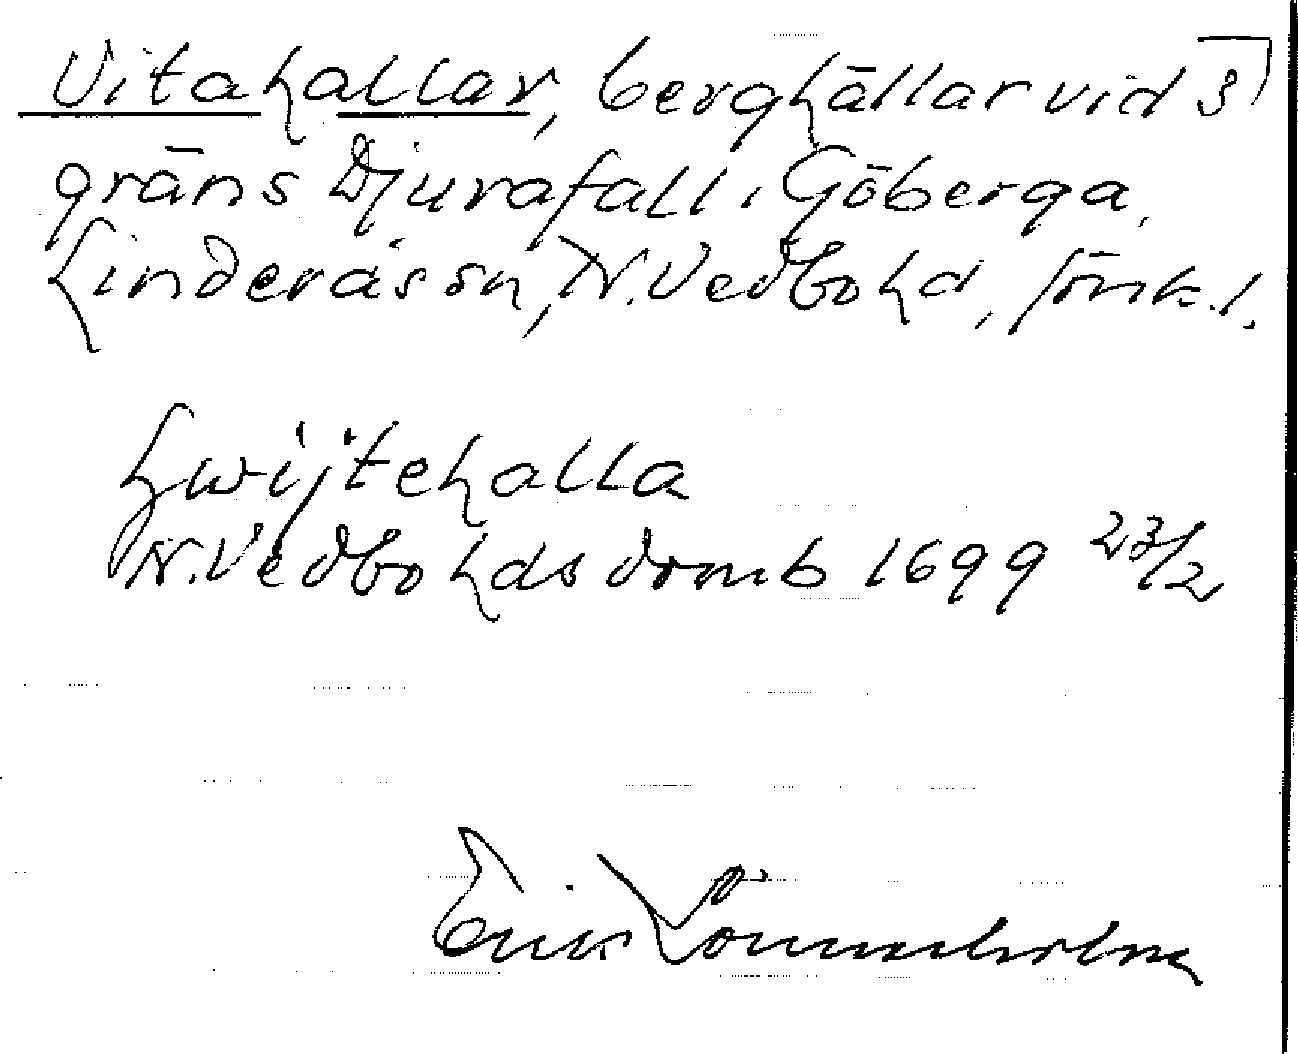 Vitahallar, berghällar vid 3
gräns Djurafall i Göberga,
Linderås sn, N. Vedbohd, Jönk. l.
Hwijtehalla
N. Vedbohds domb 1699 23/2
Erik Lönnerholm